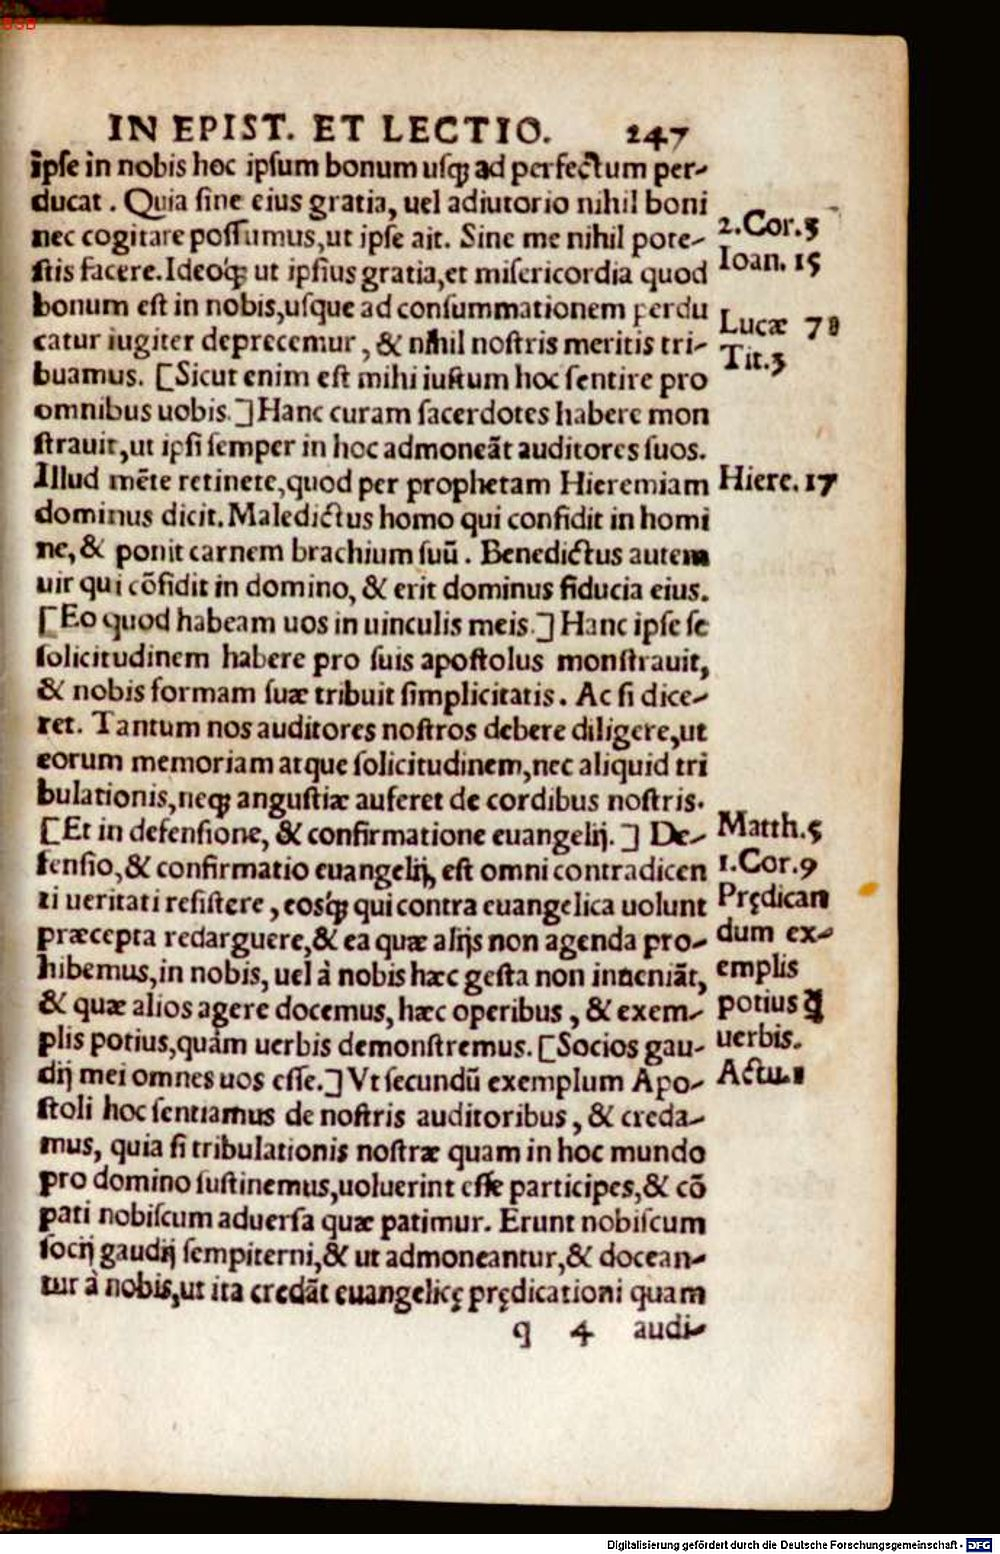 BSB
IN EPIST. ET LECTIO. 247
ipſe in nobis hoc ipſum bonum uſq́ꝫ ad perfectum per-
ducat. Quia ſine eius gratia, uel adiutorio nihil boni
nec cogitare poſſumus, ut ipſe ait. Sine me nihil pote-
ſtis facere. Ideoq́ꝫ ut ipſius gratia, et miſericordia quod
bonum eſt in nobis, uſque ad conſummationem perdu
catur iugiter deprecemur, & nihil noſtris meritis tri-
buamus. [Sicut enim eſt mihi iuſtum hoc ſentire pro
omnibus uobis.] Hanc curam ſacerdotes habere mon
ſtrauit, ut ipſi ſemper in hoc admoneãt auditores ſuos.
Illud mẽte retinete, quod per prophetam Hieremiam
dominus dicit. Maledictus homo qui confidit in homi
ne, & ponit carnem brachium ſuũ. Benedictus autem
uir qui cõfidit in domino, & erit dominus fiducia eius.
[Eo quod habeam uos in uinculis meis.] Hanc ipſe ſe
ſolicitudinem habere pro ſuis apoſtolus monſtrauit,
& nobis formam ſuæ tribuit ſimplicitatis. Ac ſi dice-
ret. Tantum nos auditores noſtros debere diligere, ut
eorum memoriam atque ſolicitudinem, nec aliquid tri
bulationis, neqꝫ anguſtiæ auferet de cordibus noſtris.
[Et in defenſione, & confirmatione euangelij.] De-
fenſio, & confirmatio euangelij, eſt omni contradicen
ti ueritati reſiſtere, eosq́ꝫ qui contra euangelica uolunt
præcepta redarguere, & ea quæ alijs non agenda pro-
hibemus, in nobis, uel à nobis hæc geſta non inueniãt,
& quæ alios agere docemus, hæc operibus, & exem-
plis potius, quàm uerbis demonſtremus. [Socios gau-
dij mei omnes uos eſſe.] Vt ſecundũ exemplum Apo-
ſtoli hoc ſentiamus de noſtris auditoribus, & creda-
mus, quia ſi tribulationis noſtræ quam in hoc mundo
pro domino ſuſtinemus, uoluerint eſſe participes, & cõ
pati nobiſcum aduerſa quæ patimur. Erunt nobiſcum
ſocij gaudij ſempiterni, & ut admoneantur, & docean-
tur à nobis, ut ita credãt euangelicę prędicationi quam
q 4 audi-
2. Cor. 3
Ioan. 15
Lucæ 7
Tit. 3
Hiere. 17
Matth. 5
1. Cor. 9
Prędican
dum ex-
emplis
potius q̃
uerbis.
Actu. 1
Digitalisierung gefördert durch die Deutsche Forschungsgemeinschaft - DFG